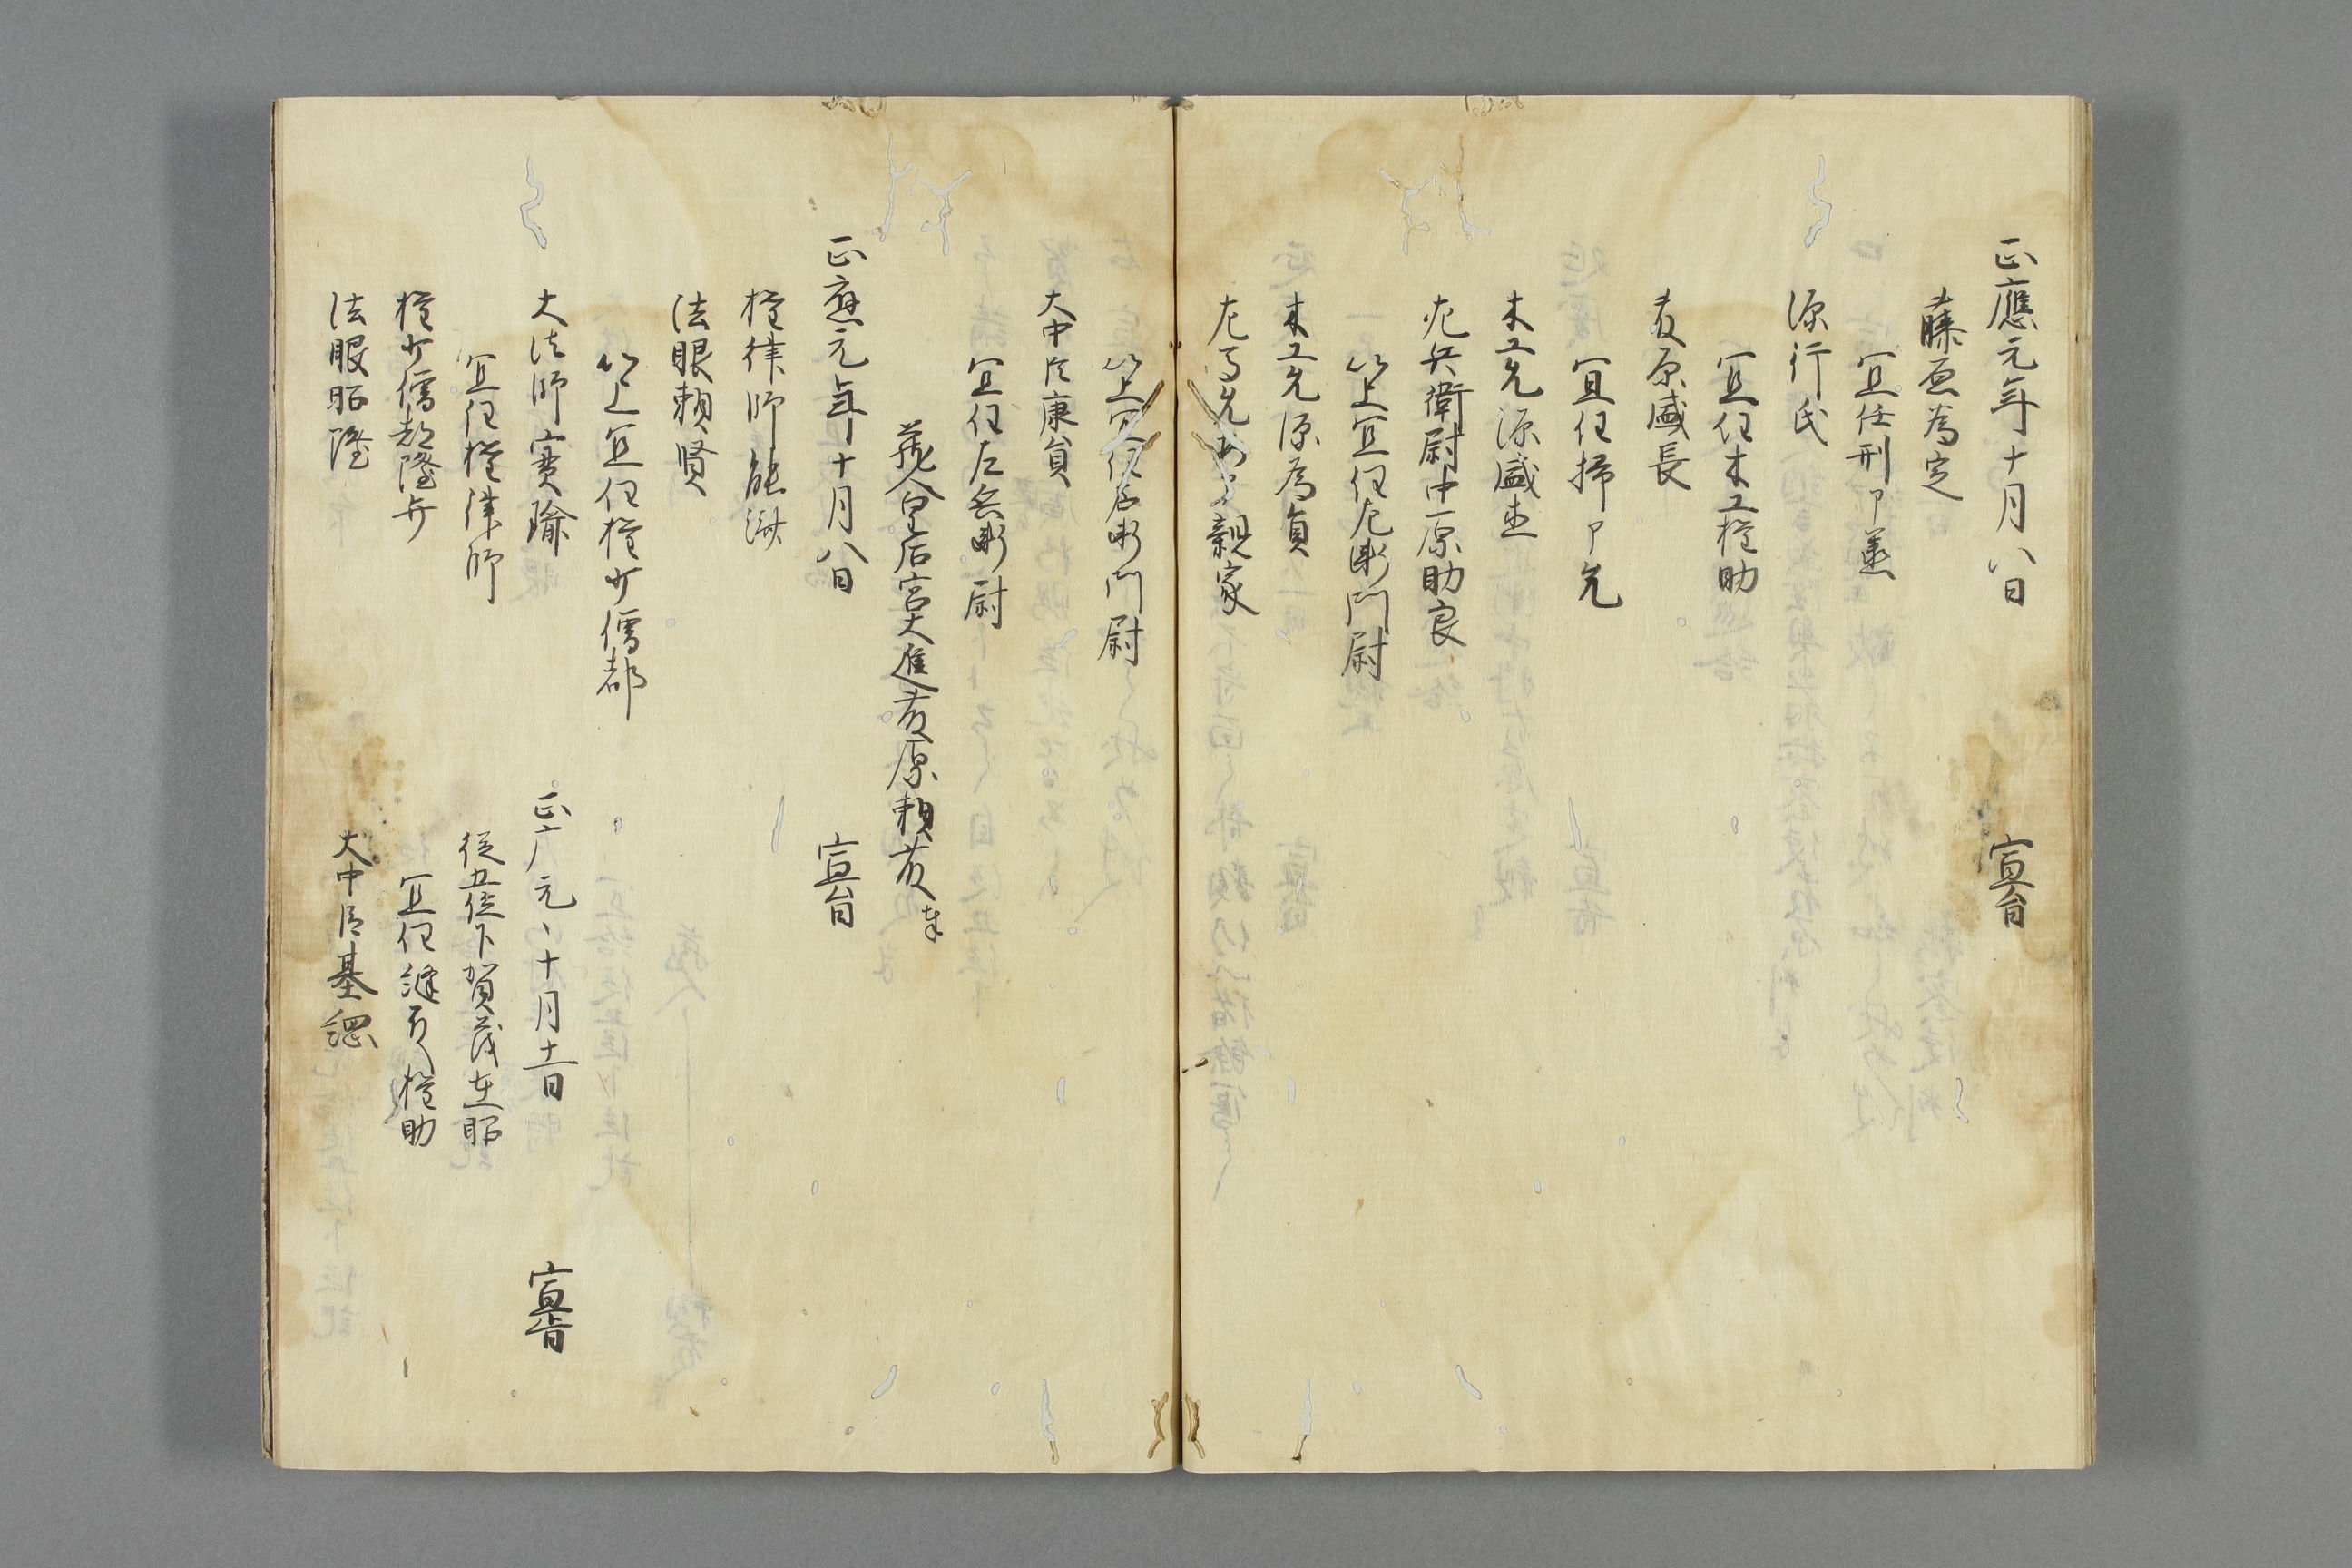 正應元年十月八日 宣旨
藤原為定
宜任刑卩丞
源行氏
宜任木工権助
藤原盛長
宜任掃卩允
木工允源盛
左兵衛尉中原助良
以上宜任左衛門尉
木工允源為員
左馬允 親家
以上宜任右衛門尉
大中臣康員
宜任左兵衛尉
蔵人皇后宮大進藤原頼藤奉
正應元年十月八日 宣旨
権律師能
法眼頼賢
以上宜任権少僧都
大法師實瑜
宜任権律師
権少僧都隆弁
法眼昭隆
正广元、十月十一日 宣旨
従五位下賀茂在昭
宜任縫殿権助
大中臣基